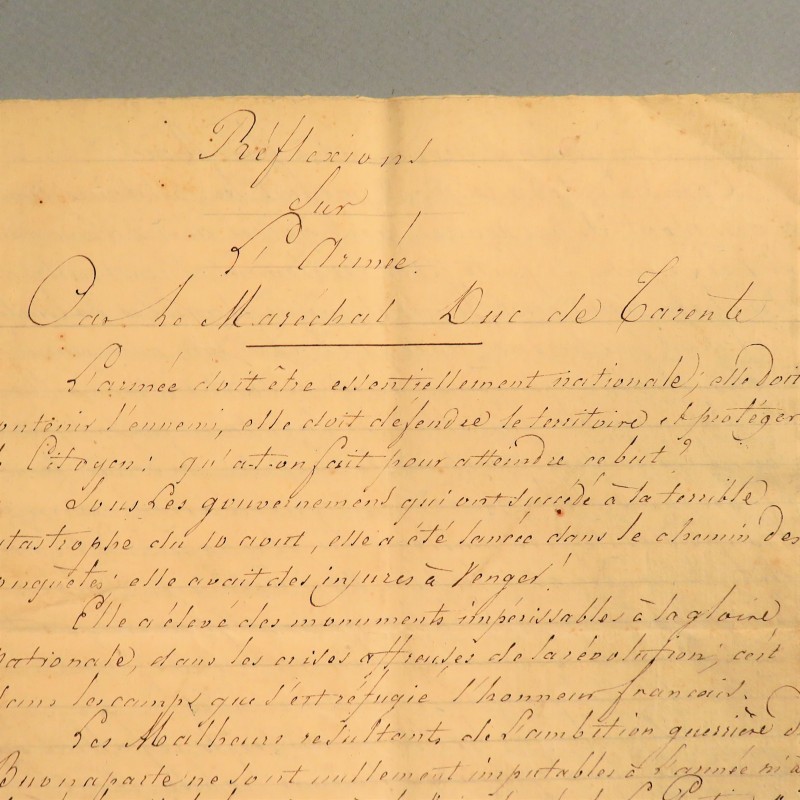 Réflexions
Sur
L'Armée.
Par Le Maréchal Duc de Tarente
L'armée doit être essentiellement nationale; elle doit
outenir l'ennemi, elle doit défendre le territoire et protéger
Citoyen: qu'a-t-on fait pour atteindre ce but?
Sous Les gouvernements qui ont succédé à la terrible
atastrophe du 10 aout, elle a été lancée dans le chemin des
onquêtes; elle avait des injures à Venger!
Elle a élevé des monuments impérissables à la gloire
nationale, dans les crises affreuses de la révolution; c'est
dans les camps que s'est réfugié l'honneur français.
Les Malheurs resultants de L'ambition guerrière d
Buonaparte ne sont nullement imputables à L'armée